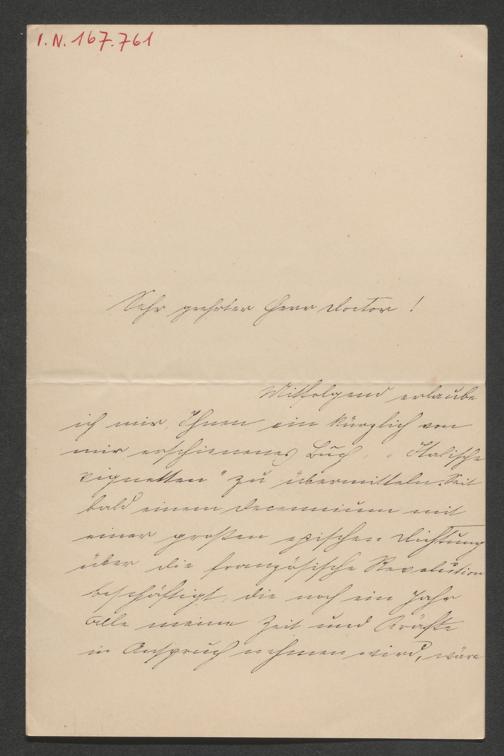 I.N. 167.761
Sehr geehrter Herr Doctor!
Mitfolgend erlaube
ich mir, Ihnen ein kürzlich von
mir erschienenes Buch, „Italische
Vignetten" zu übermitteln. Seit
bald einem Decennium mit
einer großen epischen Dichtung
über die französische Revolution
beschäftigt, die noch ein Jahr
alle meine Zeit und Kräfte
in Anspruch nehmen wird, wäre